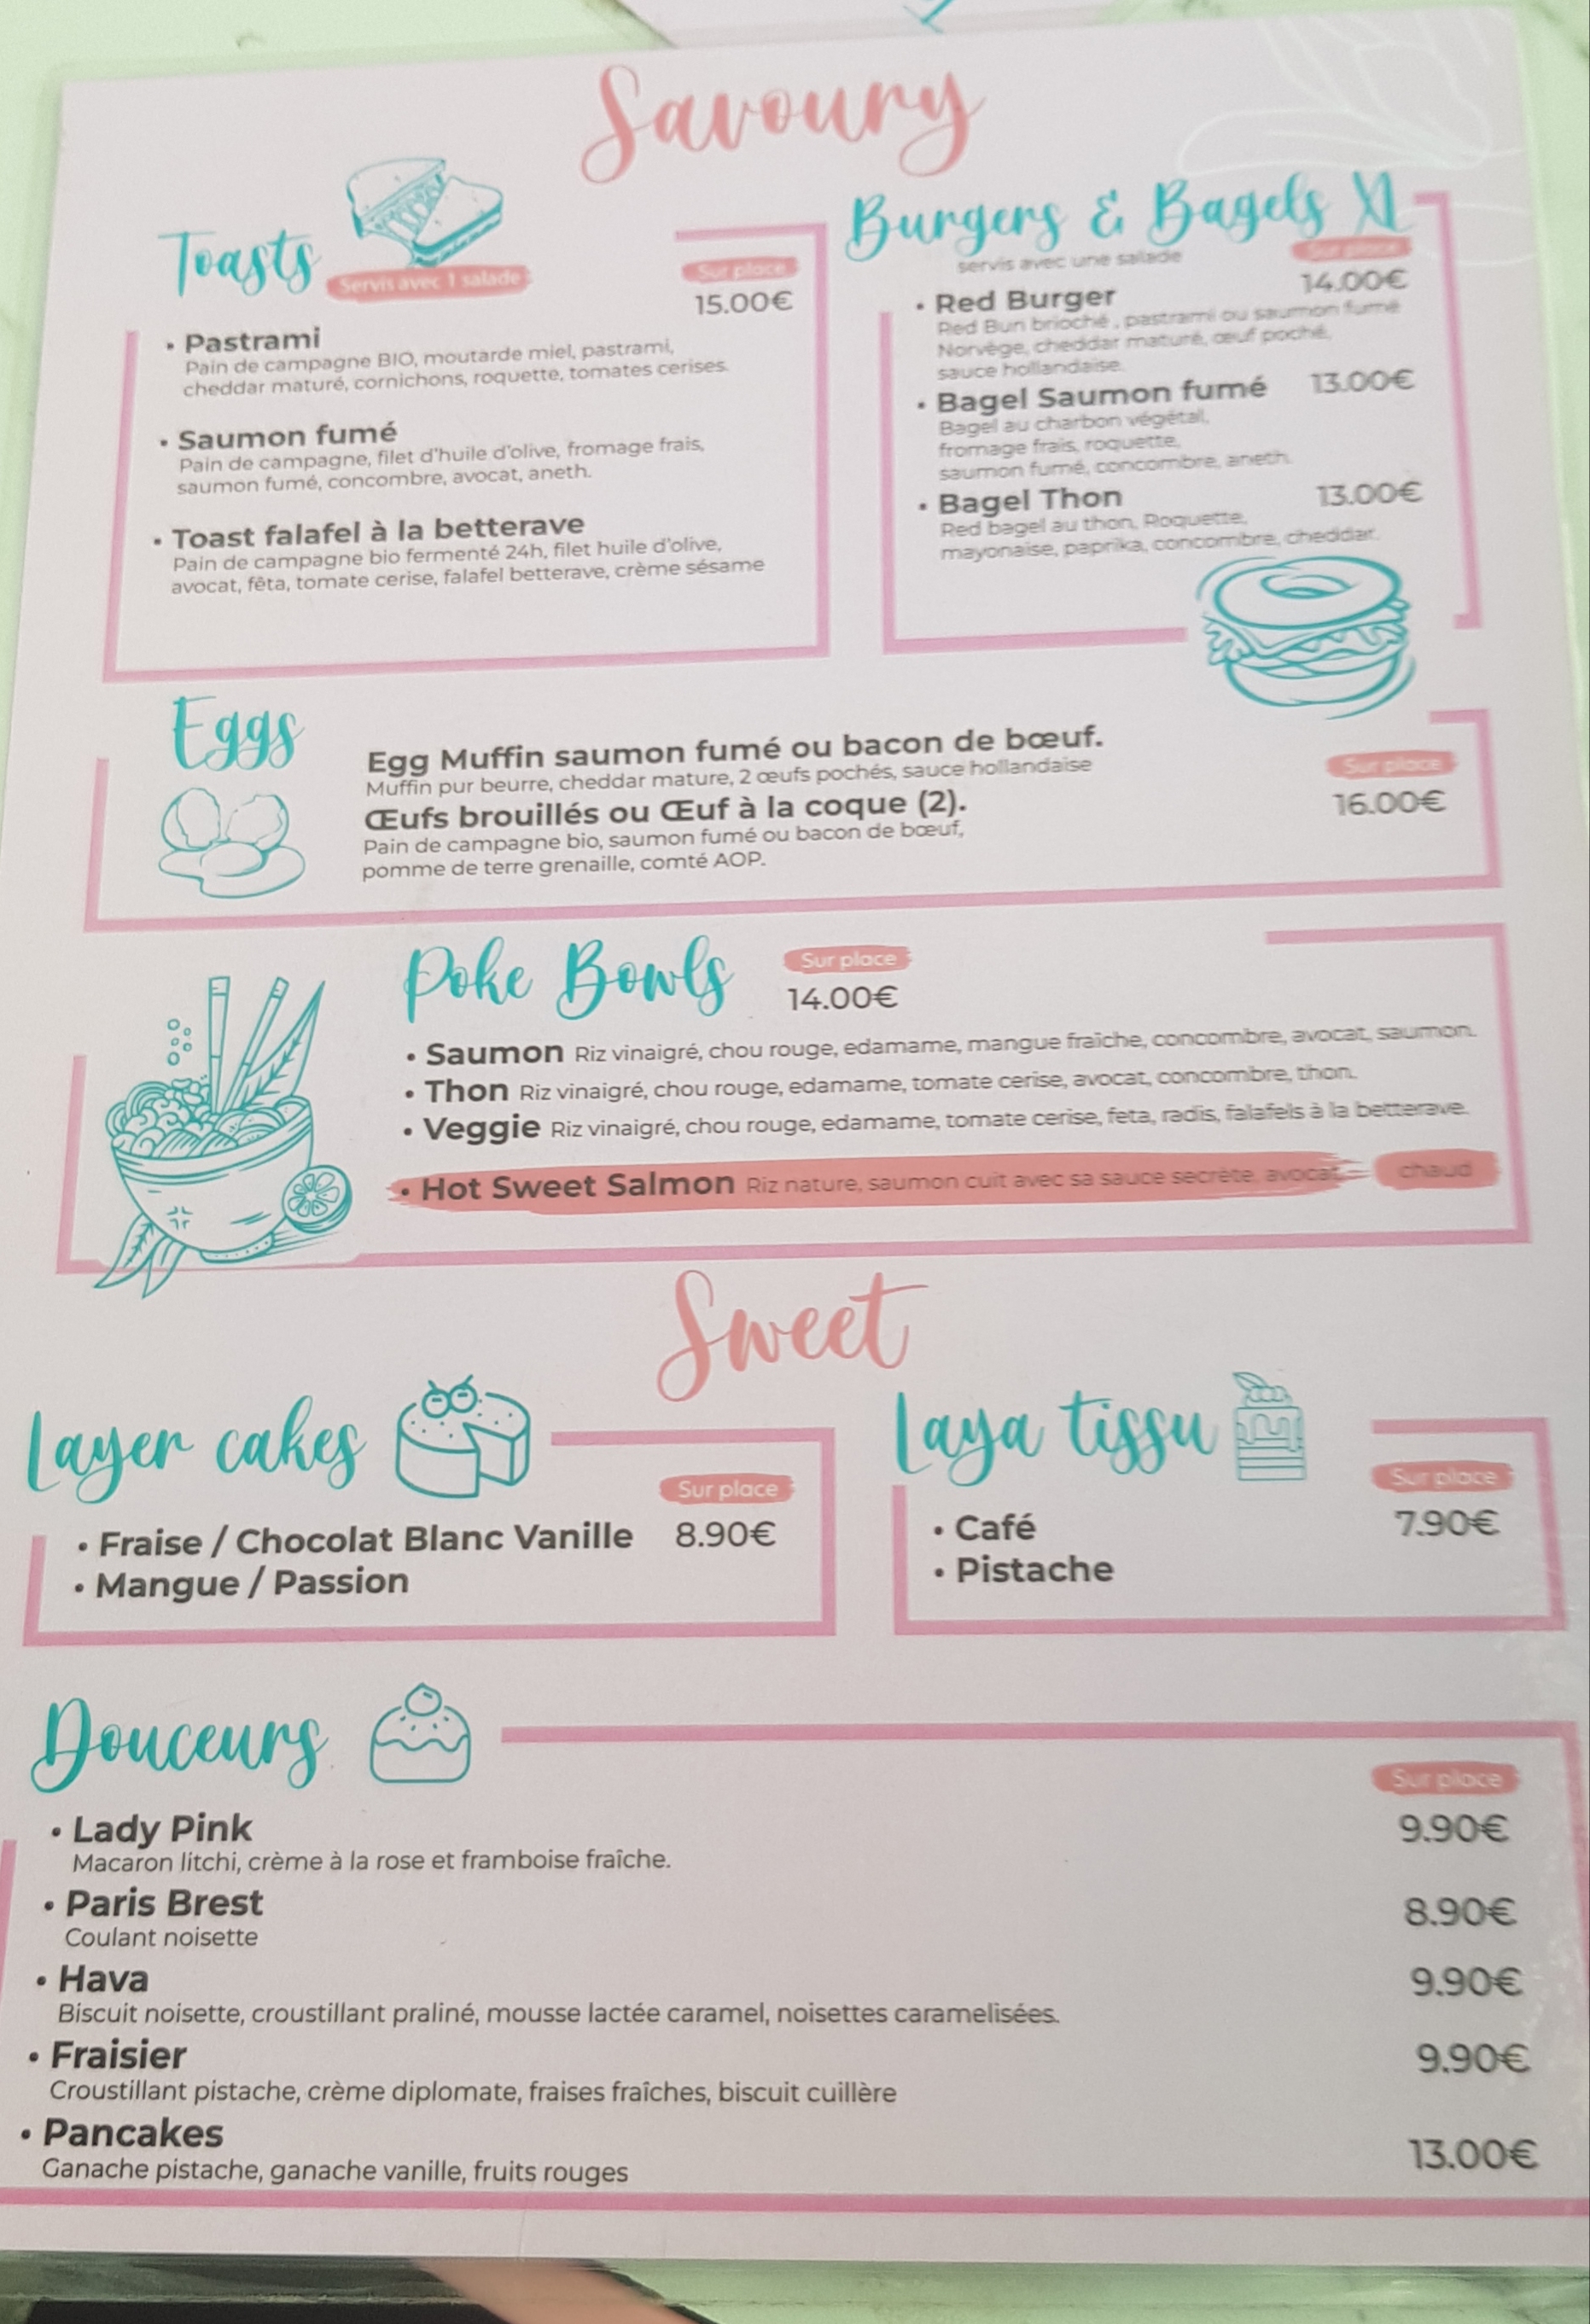 Savoury
Toasts
Servis avec 1 salade
Sur place
15.00€
• Pastrami
Pain de campagne BIO, moutarde miel, pastrami,
cheddar maturé, cornichons, roquette, tomates cerises.
• Saumon fumé
Pain de campagne, filet d'huile d'olive, fromage frais,
saumon fumé, concombre, avocat, aneth.
• Toast falafel à la betterave
Pain de campagne bio fermenté 24h, filet huile d'olive,
avocat, fêta, tomate cerise, falafel betterave, crème sésame
Burgers & Bagels XL
servis avec une salade
Sur place
• Red Burger 14.00€
Red Bun brioché , pastrami ou saumon fumé
Norvège, cheddar maturé, œuf poché,
sauce hollandaise.
• Bagel Saumon fumé 13.00€
Bagel au charbon végétal,
fromage frais, roquette,
saumon fumé, concombre, aneth.
• Bagel Thon 13.00€
Red bagel au thon, Roquette,
mayonaise, paprika, concombre, cheddar.
Eggs
Egg Muffin saumon fumé ou bacon de bœuf.
Muffin pur beurre, cheddar mature, 2 œufs pochés, sauce hollandaise
Sur place
16.00€
Œufs brouillés ou Œuf à la coque (2).
Pain de campagne bio, saumon fumé ou bacon de bœuf,
pomme de terre grenaille, comté AOP.
Poke Bowls
Sur place
14.00€
• Saumon Riz vinaigré, chou rouge, edamame, mangue fraîche, concombre, avocat, saumon.
• Thon Riz vinaigré, chou rouge, edamame, tomate cerise, avocat, concombre, thon.
• Veggie Riz vinaigré, chou rouge, edamame, tomate cerise, feta, radis, falafels à la betterave.
• Hot Sweet Salmon Riz nature, saumon cuit avec sa sauce secrète, avocat chaud
Sweet
Layer cakes
Sur place
• Fraise / Chocolat Blanc Vanille 8.90€
• Mangue / Passion
Laya tissu
Sur place
• Café 7.90€
• Pistache
Douceurs
Sur place
• Lady Pink 9.90€
Macaron litchi, crème à la rose et framboise fraîche.
• Paris Brest 8.90€
Coulant noisette
• Hava 9.90€
Biscuit noisette, croustillant praliné, mousse lactée caramel, noisettes caramelisées.
• Fraisier 9.90€
Croustillant pistache, crème diplomate, fraises fraîches, biscuit cuillère
• Pancakes 13.00€
Ganache pistache, ganache vanille, fruits rouges